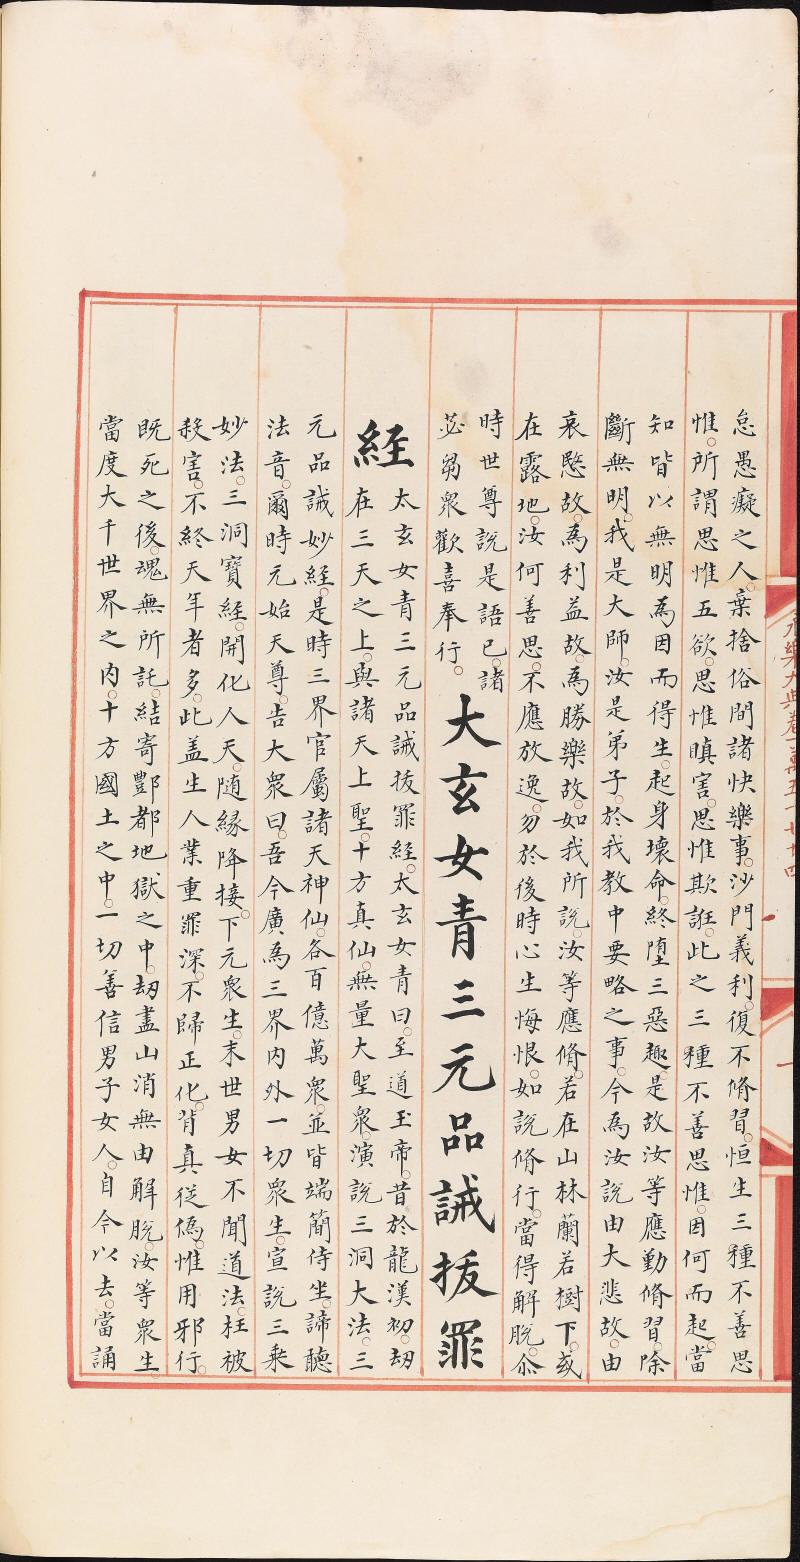 永樂大典卷一萬五千
一
怠愚癡之人。棄捨俗間諸快樂事。沙門義利。復不脩習。恒生三種不善思
惟。所謂思惟五欲。思惟瞋害。思惟欺誑。此之三種不善思惟。因何而起。當
知皆以無明為因而得生。起身壞命。終墮三惡趣。是故汝等應勤脩習。除
斷無明。我是大師。汝是弟子。於我教中要略之事。今為汝說由大悲故。由
哀愍故。為利益故。為勝樂故。如我所說。汝等應脩。若在山林蘭若樹下。或
在露地。汝何善思。不應放逸。勿於後時心生悔恨。如說脩行。當得解脫。尒
時世尊說是語已。諸
苾芻衆歡喜奉行。
大玄女青三元品誡拔罪
經
太玄女青三元品誡拔罪經。太玄女青曰。至道玉帝。昔於龍漢初。刼
在三天之上。與諸天上聖。十方真仙。無量大聖衆。演說三洞大法。三
元品誡妙經。是時三界官屬諸天神仙。各百億萬衆。並皆端簡侍坐。諦聽
法音。爾時元始天尊。告大衆曰。吾今廣為三界內外一切衆生。宣說三乘
妙法。三洞寶經。開化人天。随緣降接。下元衆生。末世男女不聞道法。枉被
殺害。不終天年者多。此盖生人業重罪深。不歸正化。背真從僞。惟用邪行。
既死之後。魂無所託。結寄酆都地獄之中。刼盡山消無由解脫。汝等衆生。
當度大千世界之內。十方國土之中。一切善信男子女人。自今以去。當誦